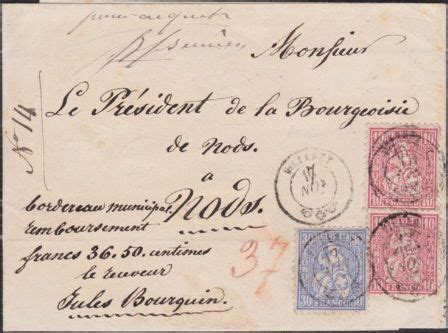 pour acquit
Monsieur
No 14
Le Président de la Bourgeoisie
de Nods.
à
Nods.
bordereau municipal
remboursement
francs 36.50. centimes
le receveur
Jules Bourquin.
37
17
NOV
10
10
30 FRANCO 30